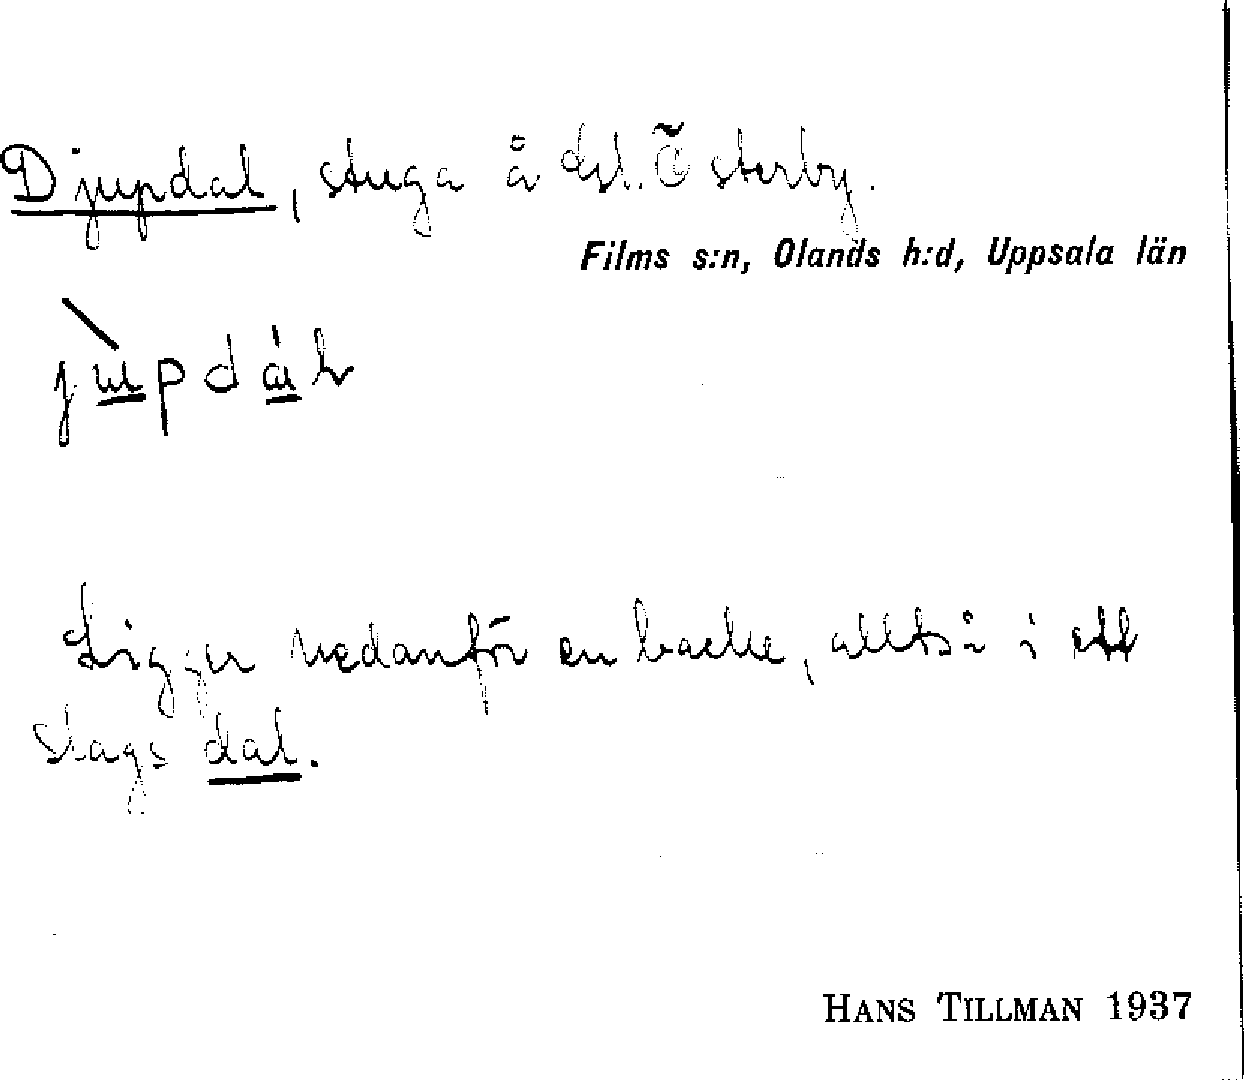 Djupdal, stuga å dsl. Österby.
Films s:n, Olands h:d, Uppsala län
Ligger nedanför en backe, alltså i ett
slags dal.
HANS TILLMAN 1937